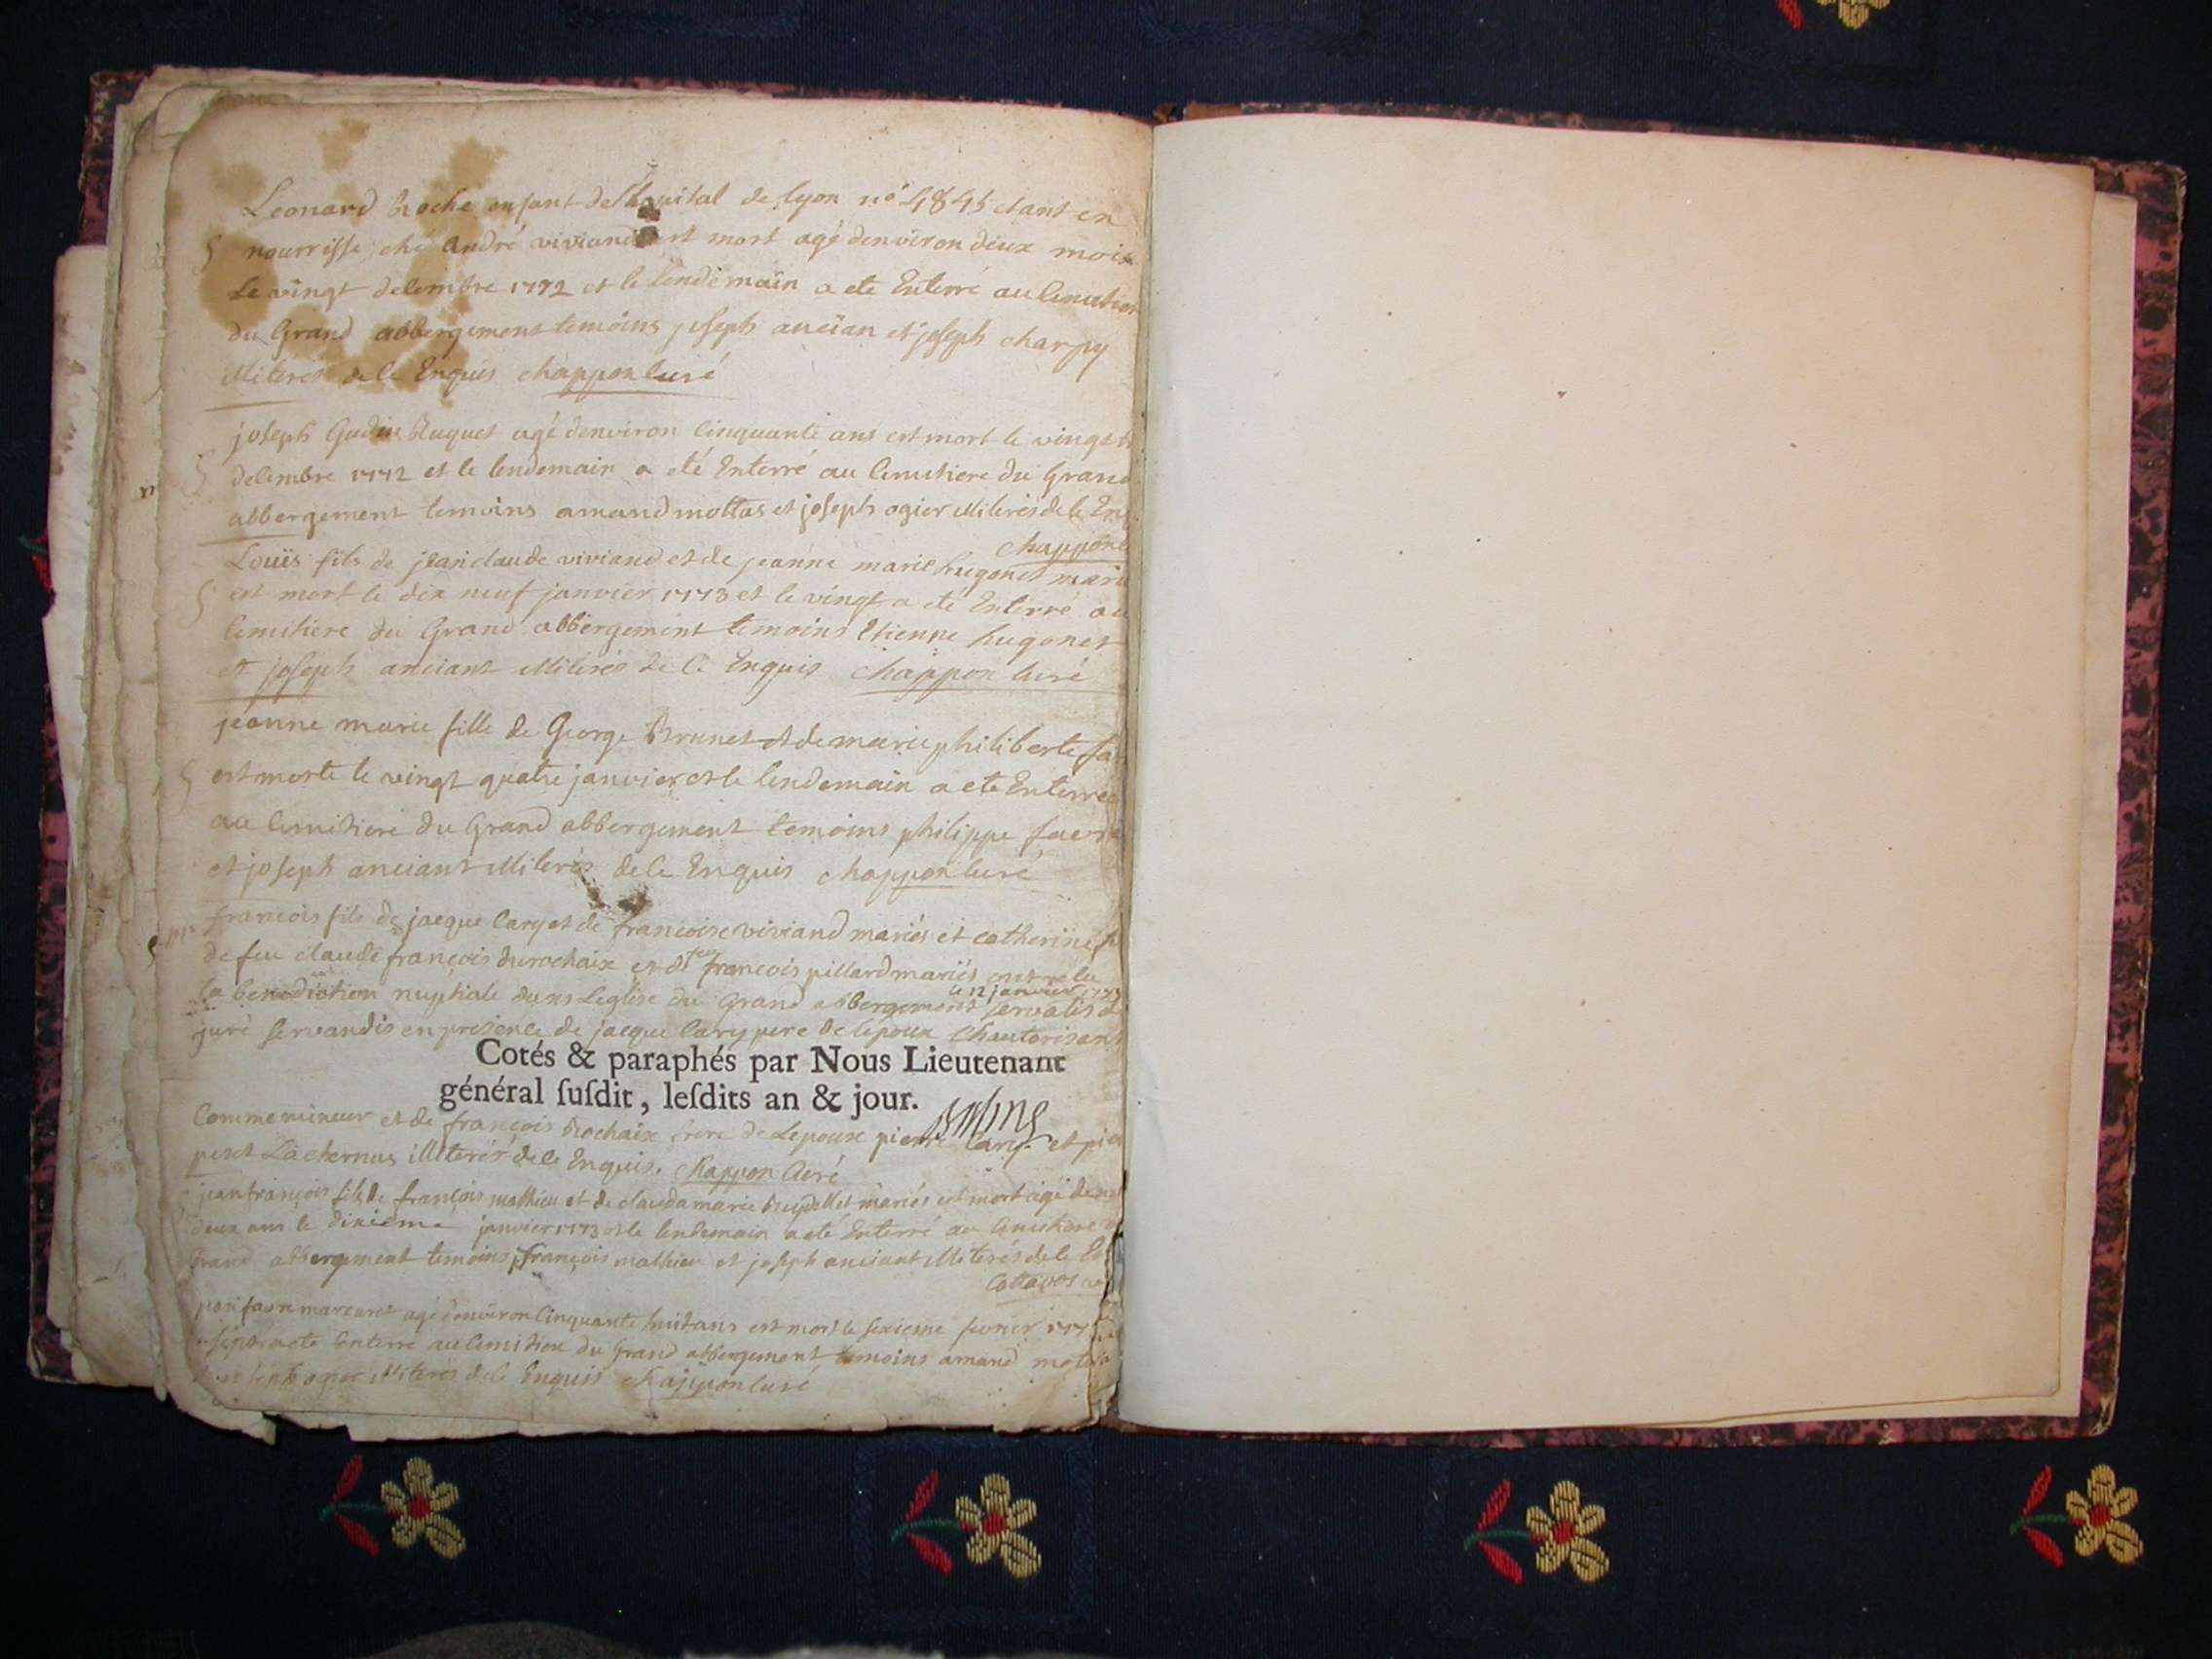 Leonard Roche enfant de lhopital de lyon no 4845 etant en
nourrisse ché andré viviand est mort agé denviron deux mois
Le vingt decembre 1772 et le lendemain a ete Enterré au
du Grand abbergement temoins joseph ancian et joseph charpy
illiteres de ce Enquis chappon curé
joseph Gudin agé denviron cinquante ans est mort le vingt
decembre 1772 et le lendemain a eté Enterré au cimitiere du Grand
abbergement temoins amand mottas et joseph ogier illiterés de ce
chappon
Louis fils de jean claude viviand et de jeanne marie hugonet
est mort le dix neuf janvier 1773 et le vingt a eté Enterré au
cimitiere du Grand abbergement temoins Etienne hugonet
et joseph anciant illiterés de ce Enquis chappon curé
jeanne marie fille de George Brunet et de marie philiberte
est morte le vingt quatre janvier et le lendemain a ete Enterrée
au cimitiere du Grand abbergement temoins philippe favre
et joseph anciant illiterés de ce Enquis chappon curé
francois fils de jacque Cary et de francoise viviand mariés et catherine
de feu claude françois durochaix et de feu francois pillard mariés ont
le 12 janvier 1773
la benediction nuptiale dans Leglise du Grand abbergement servatis de
jure servandis en presence de jacque Cary pere de lepoux Lhautorisant
Cotés & paraphés par Nous Lieutenant
général ſuſdit, leſdits an & jour.
Comme mineur et de françois Rochaix frere de Lepouse pierre Cary et
petit illiterés de ce Enquis. chappon curé
jean françois fils de françois mathieu et de claudamarie mariés est mort agé de
deux ans le dixieme janvier 1773 et le lendemain a eté Enterré au cimitiere
Grand abbergement temoins françois mathieu et joseph anciant illiterés de ce
favre agé denviron cinquante huit ans est mort le sixieme fevrier
a ete Enterré au cimitiere du Grand abbergement temoins amand
ogier illiterés de ce Enquis chappon curé